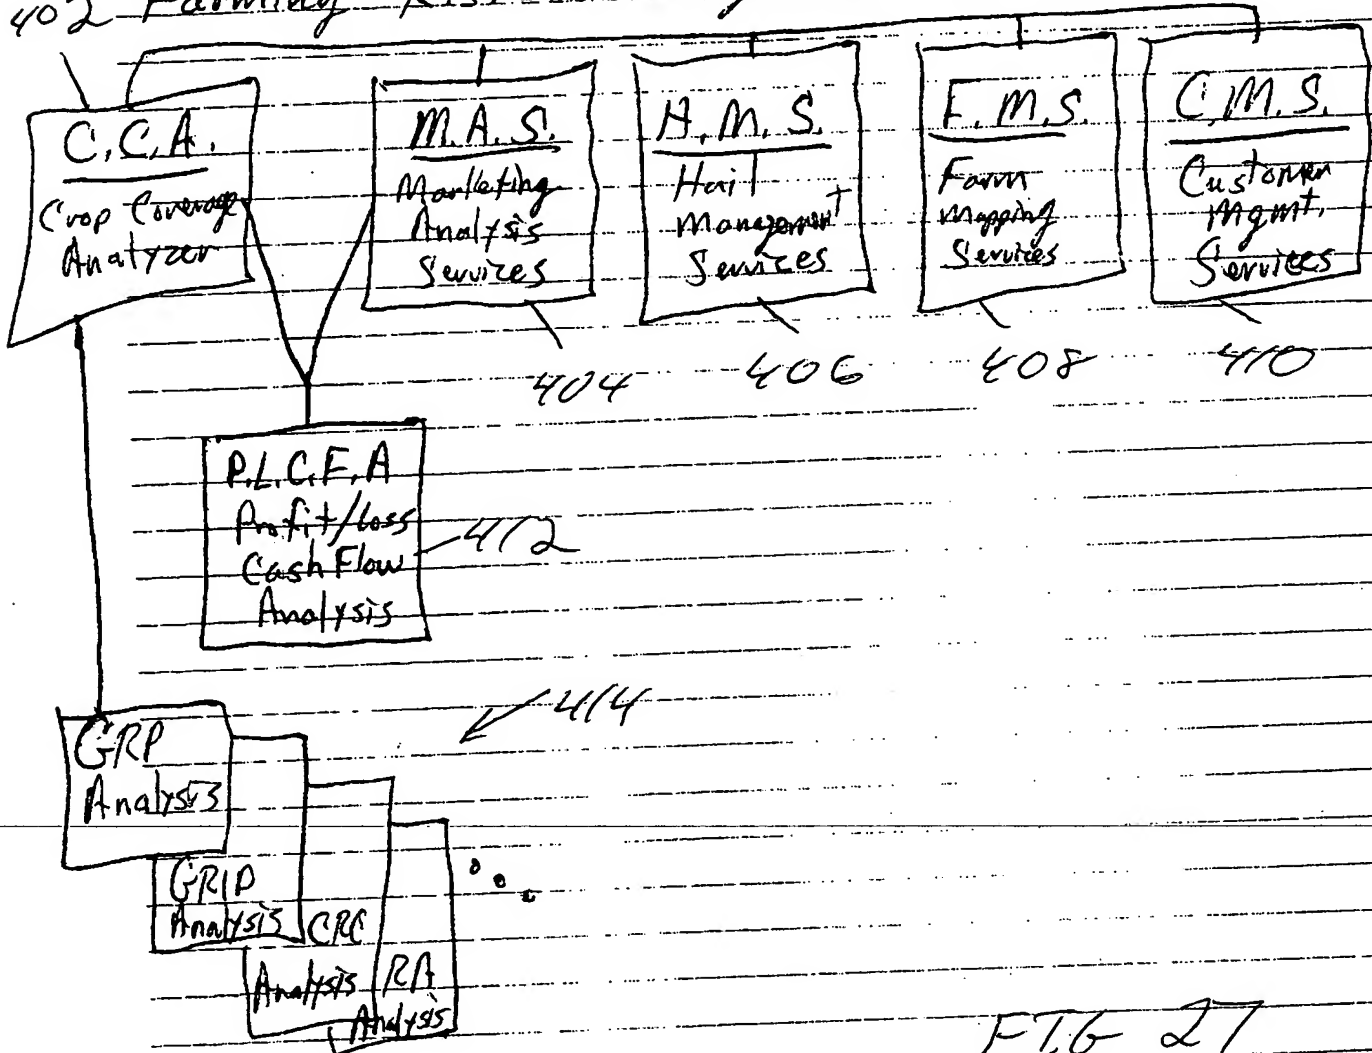 402 Farming
C.C.A.
Crop Coverage
Analyzer
M.A.S.
Marketing
Analysis
Services
H.M.S.
Hail
Management
Services
F.M.S.
Farm
Mapping
Services
C.M.S.
Customer
Mgmt.
Services
404
406
408
410
P.L.C.F.A
Profit/Loss
Cash Flow
Analysis
412
414
GRP
Analysis
GRIP
Analysis
CRC
Analysis
RA
Analysis
FIG 27